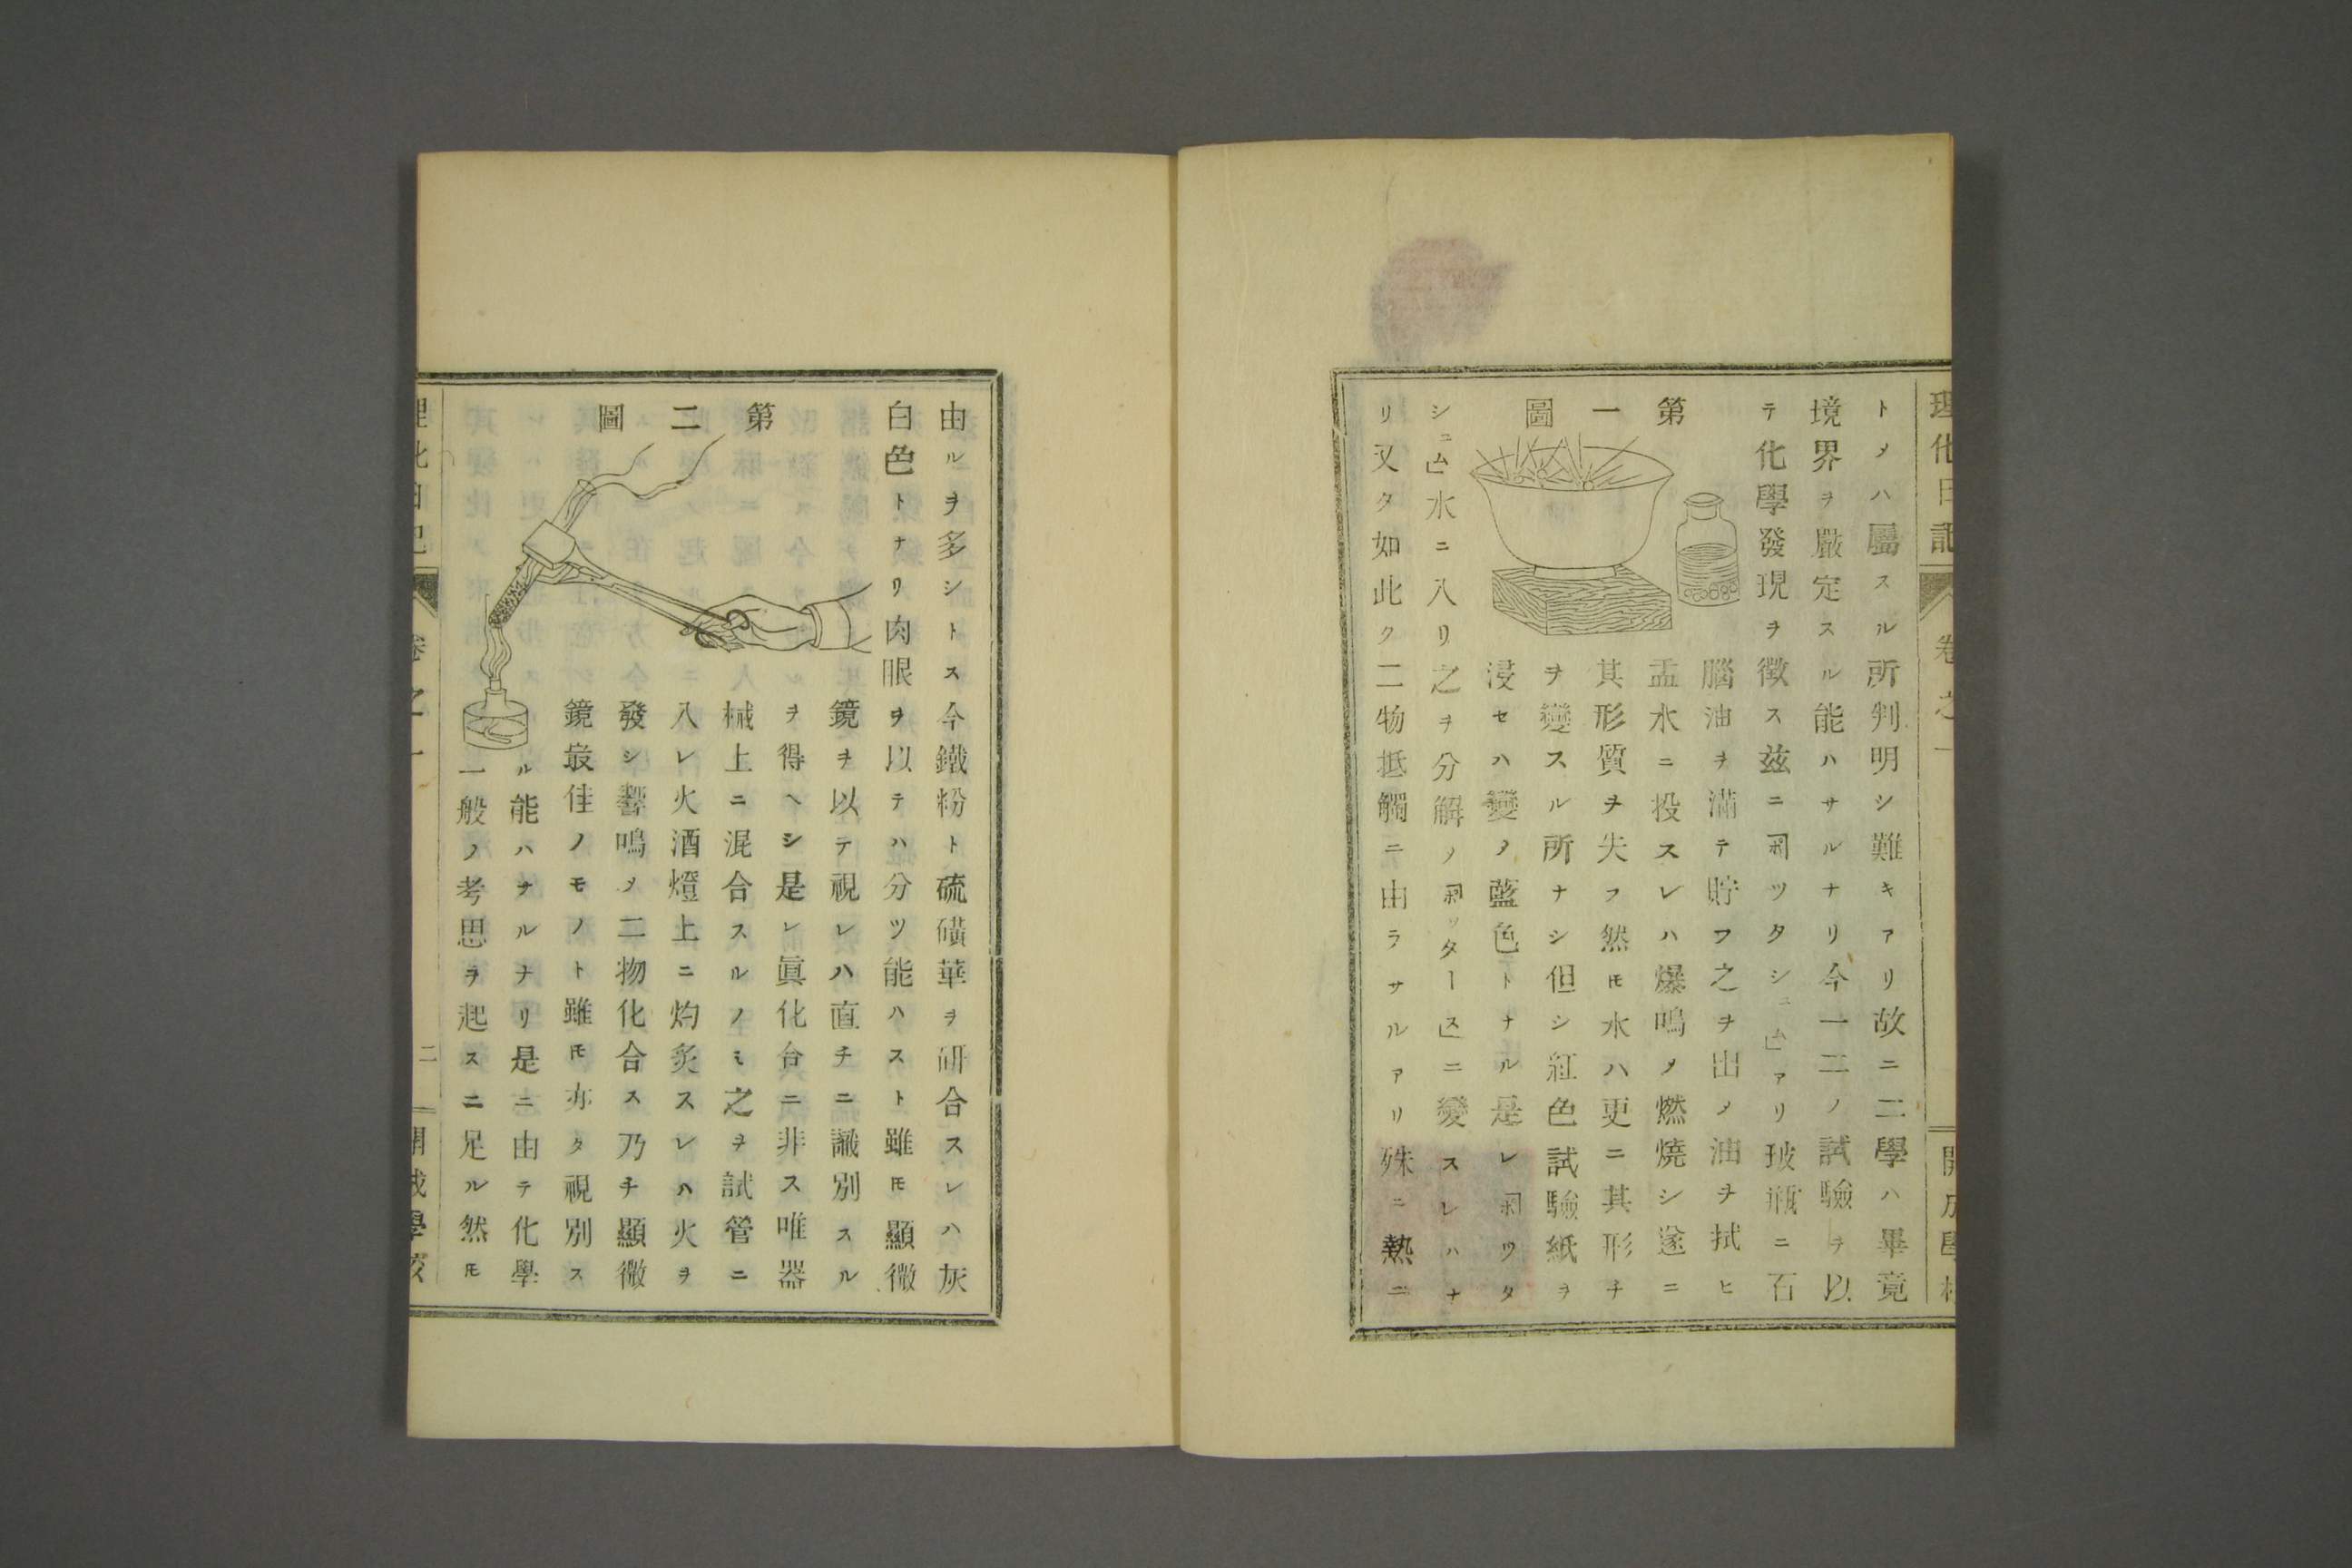 理化日記
卷之一
開成學校
トノハ屬スル所判明シ難キアリ故ニ二學ハ畢竟
境界ヲ嚴定スル能ハサルナリ今一二ノ試驗ヲ以
テ化學發現ヲ徴ス茲ニ剝ツタシユムアリ玻瓶ニ石
腦油ヲ滿テ貯フ之ヲ出ノ油ヲ拭ヒ
盂水ニ投スレハ爆鳴ノ燃燒シ遂ニ
其形質ヲ失フ然𪜈水ハ更ニ其形チ
ヲ變スル所ナシ但シ紅色試驗紙ヲ
浸セハ變ノ藍色トナル是レ剝ツタ
シユム水ニ入リ之ヲ分解ノ剝ツタースニ變スレハナ
リ又タ如此ク二物抵觸ニ由ラサルアリ殊ニ熱ニ
第一圖
由ルヲ多シトス今鐵粉ト硫磺華ヲ研合スレハ灰
白色トナリ肉眼ヲ以テハ分ツ能ハスト雖𪜈顯微
鏡ヲ以テ視レハ直チニ識別スル
ヲ得ヘシ是レ眞化合ニ非ス唯器
械上ニ混合スルノミ之ヲ試管ニ
入レ火酒燈上ニ灼炙スレハ火ヲ
發シ響鳴ノ二物化合ス乃チ顯微
鏡最佳ノモノト雖𪜈亦タ視別ス
ル能ハナルナリ是ニ由テ化學
一般ノ考思ヲ起スニ足ル然𪜈
第二圖
二